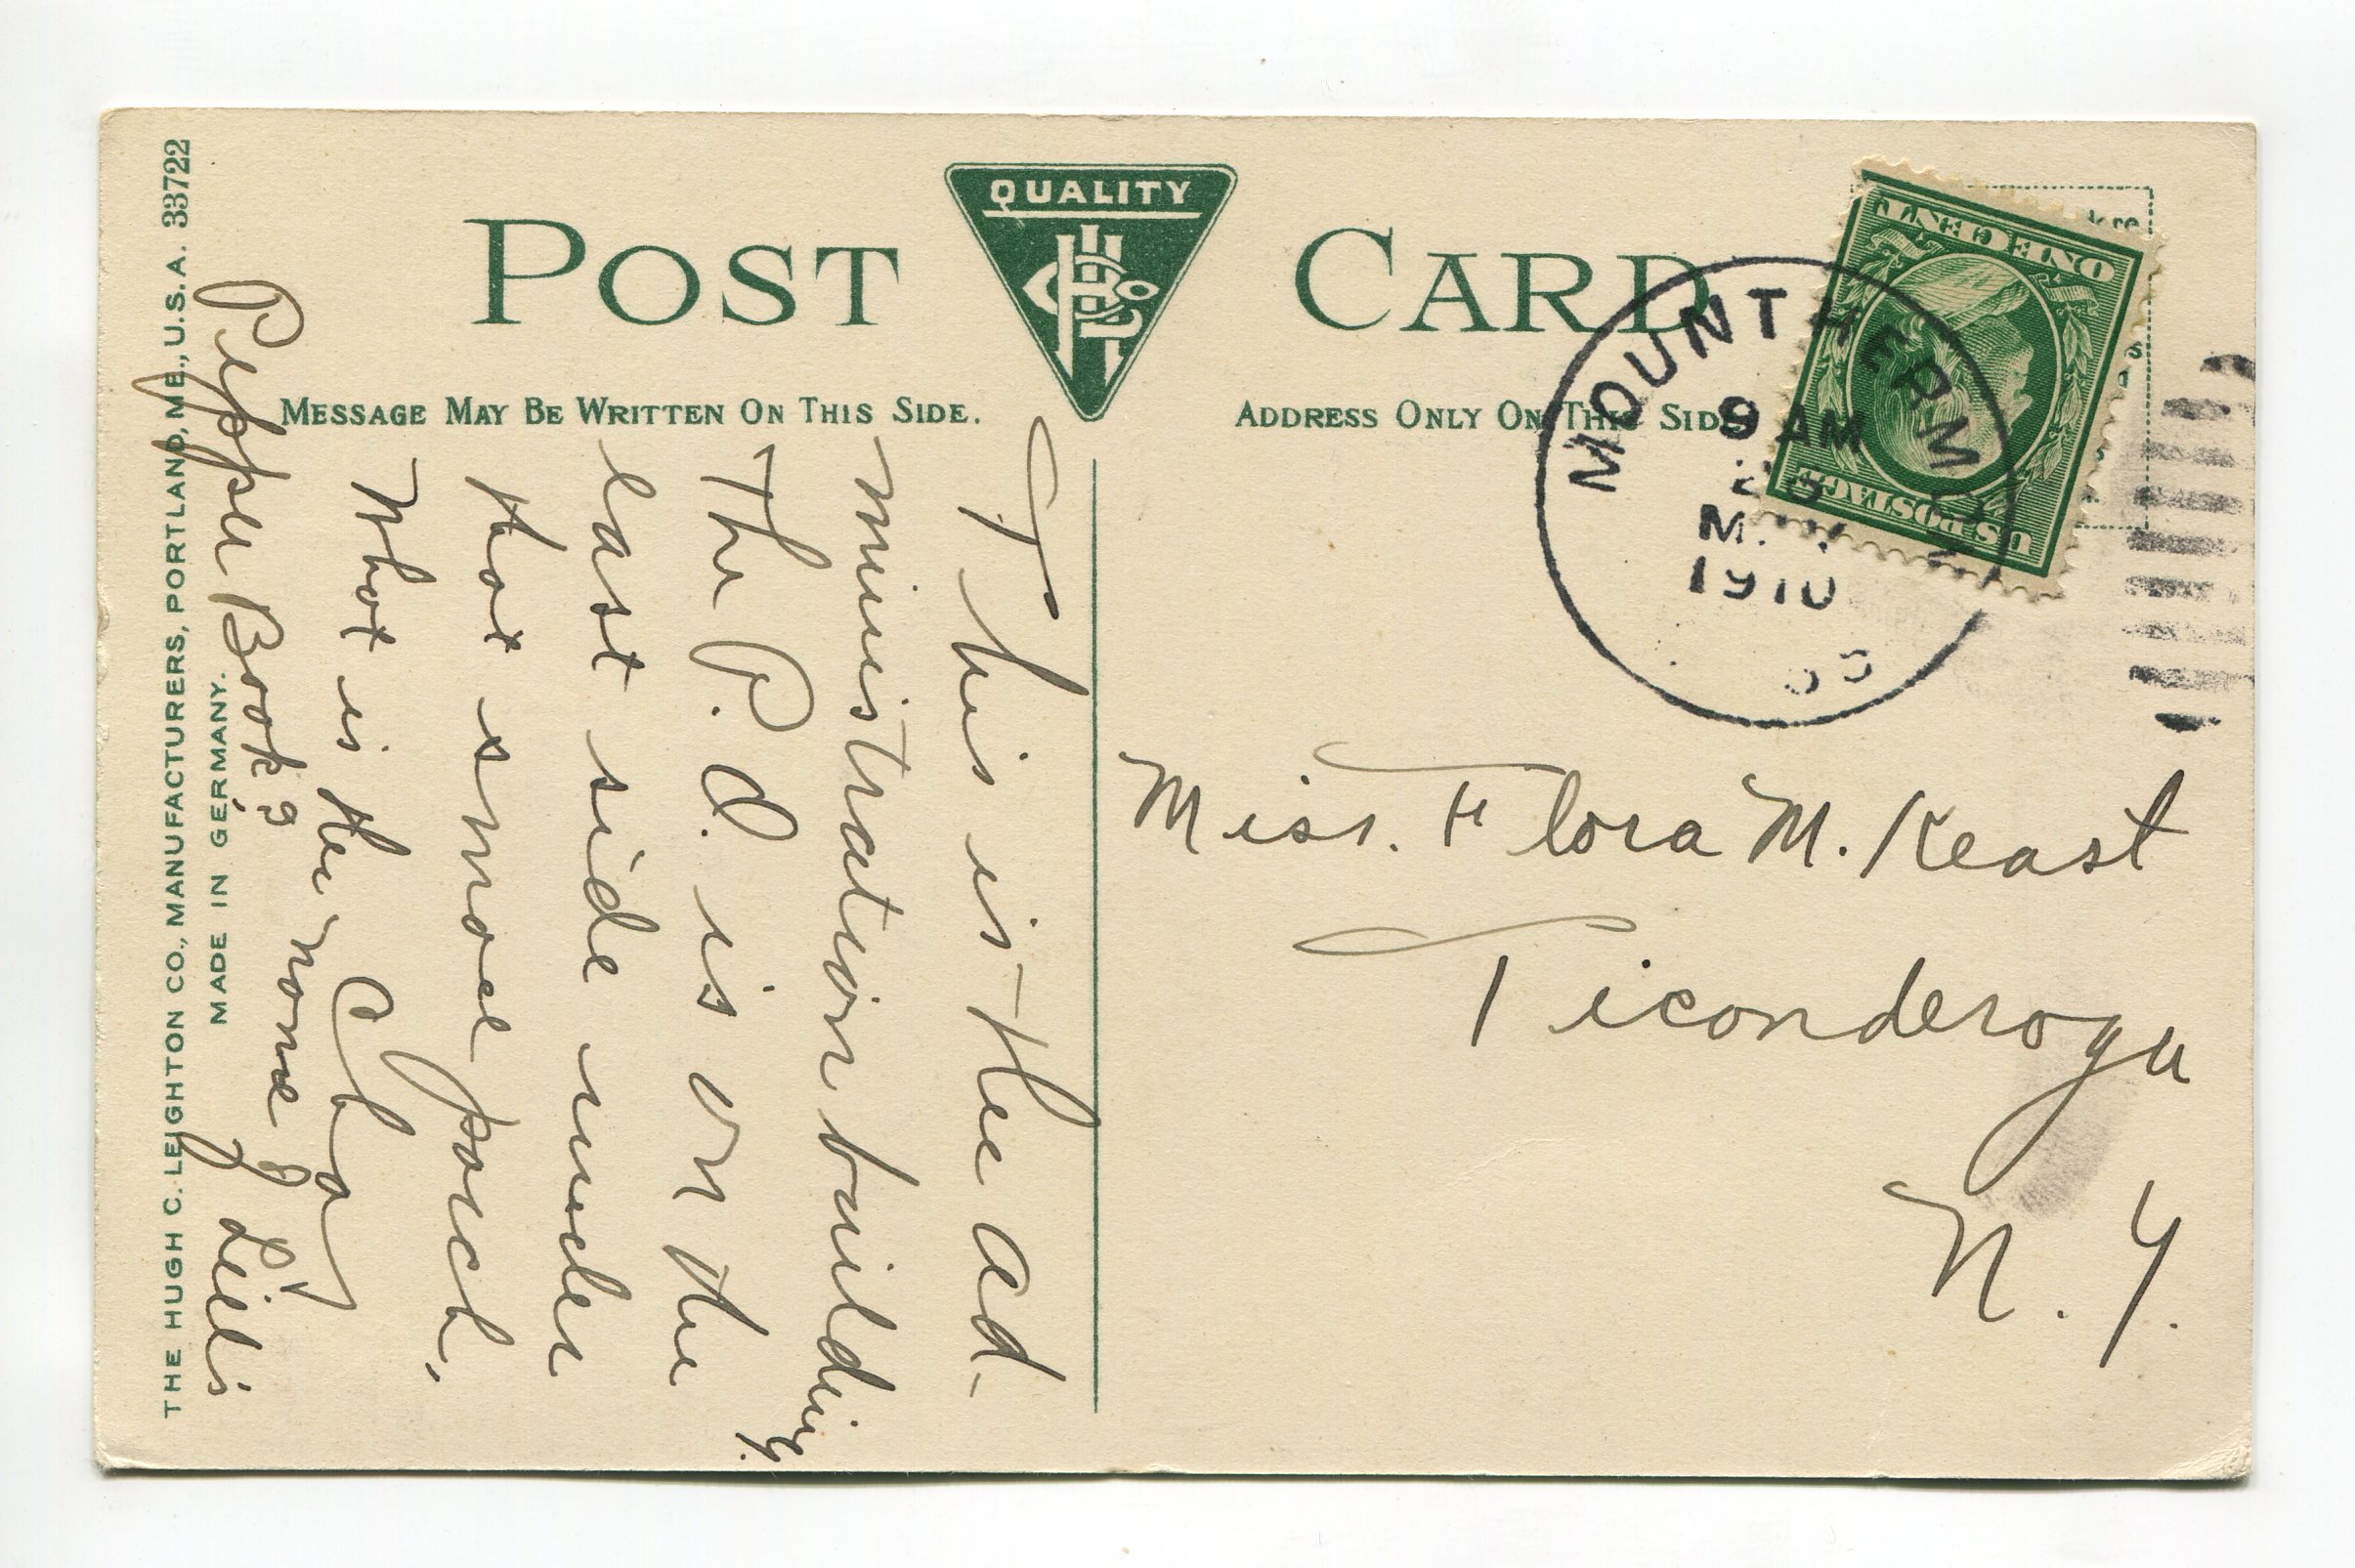 THE HUGH C. LEIGHTON CO., MANUFACTURERS, PORTLAND, ME., U.S.A. 33722
MADE IN GERMANY.
POST CARD
QUALITY
MESSAGE MAY BE WRITTEN ON THIS SIDE.
ADDRESS ONLY ON THIS SIDE
This is the ad-
ministration building.
The P.O. is on the
last side under
that small porch.
What is the name of Liel's
Pepper Book?
Chas
MOUNT HERMON
9 AM
1910
ONE CENT
U.S. POSTAGE
Miss. Flora M. Keast
Ticonderoga
N.Y.